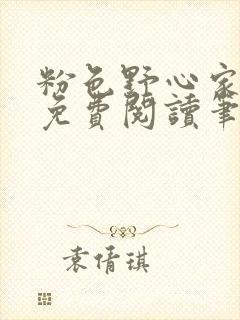 粉色野心家
免費閱讀筆
袁倩琪